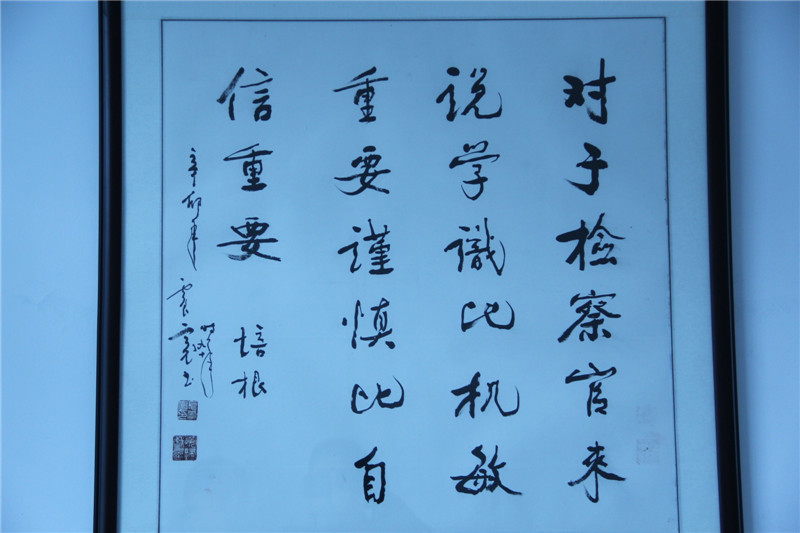 对于检察官来
说学識比机敏
重要謹慎比自
信重要
培根
辛卯年